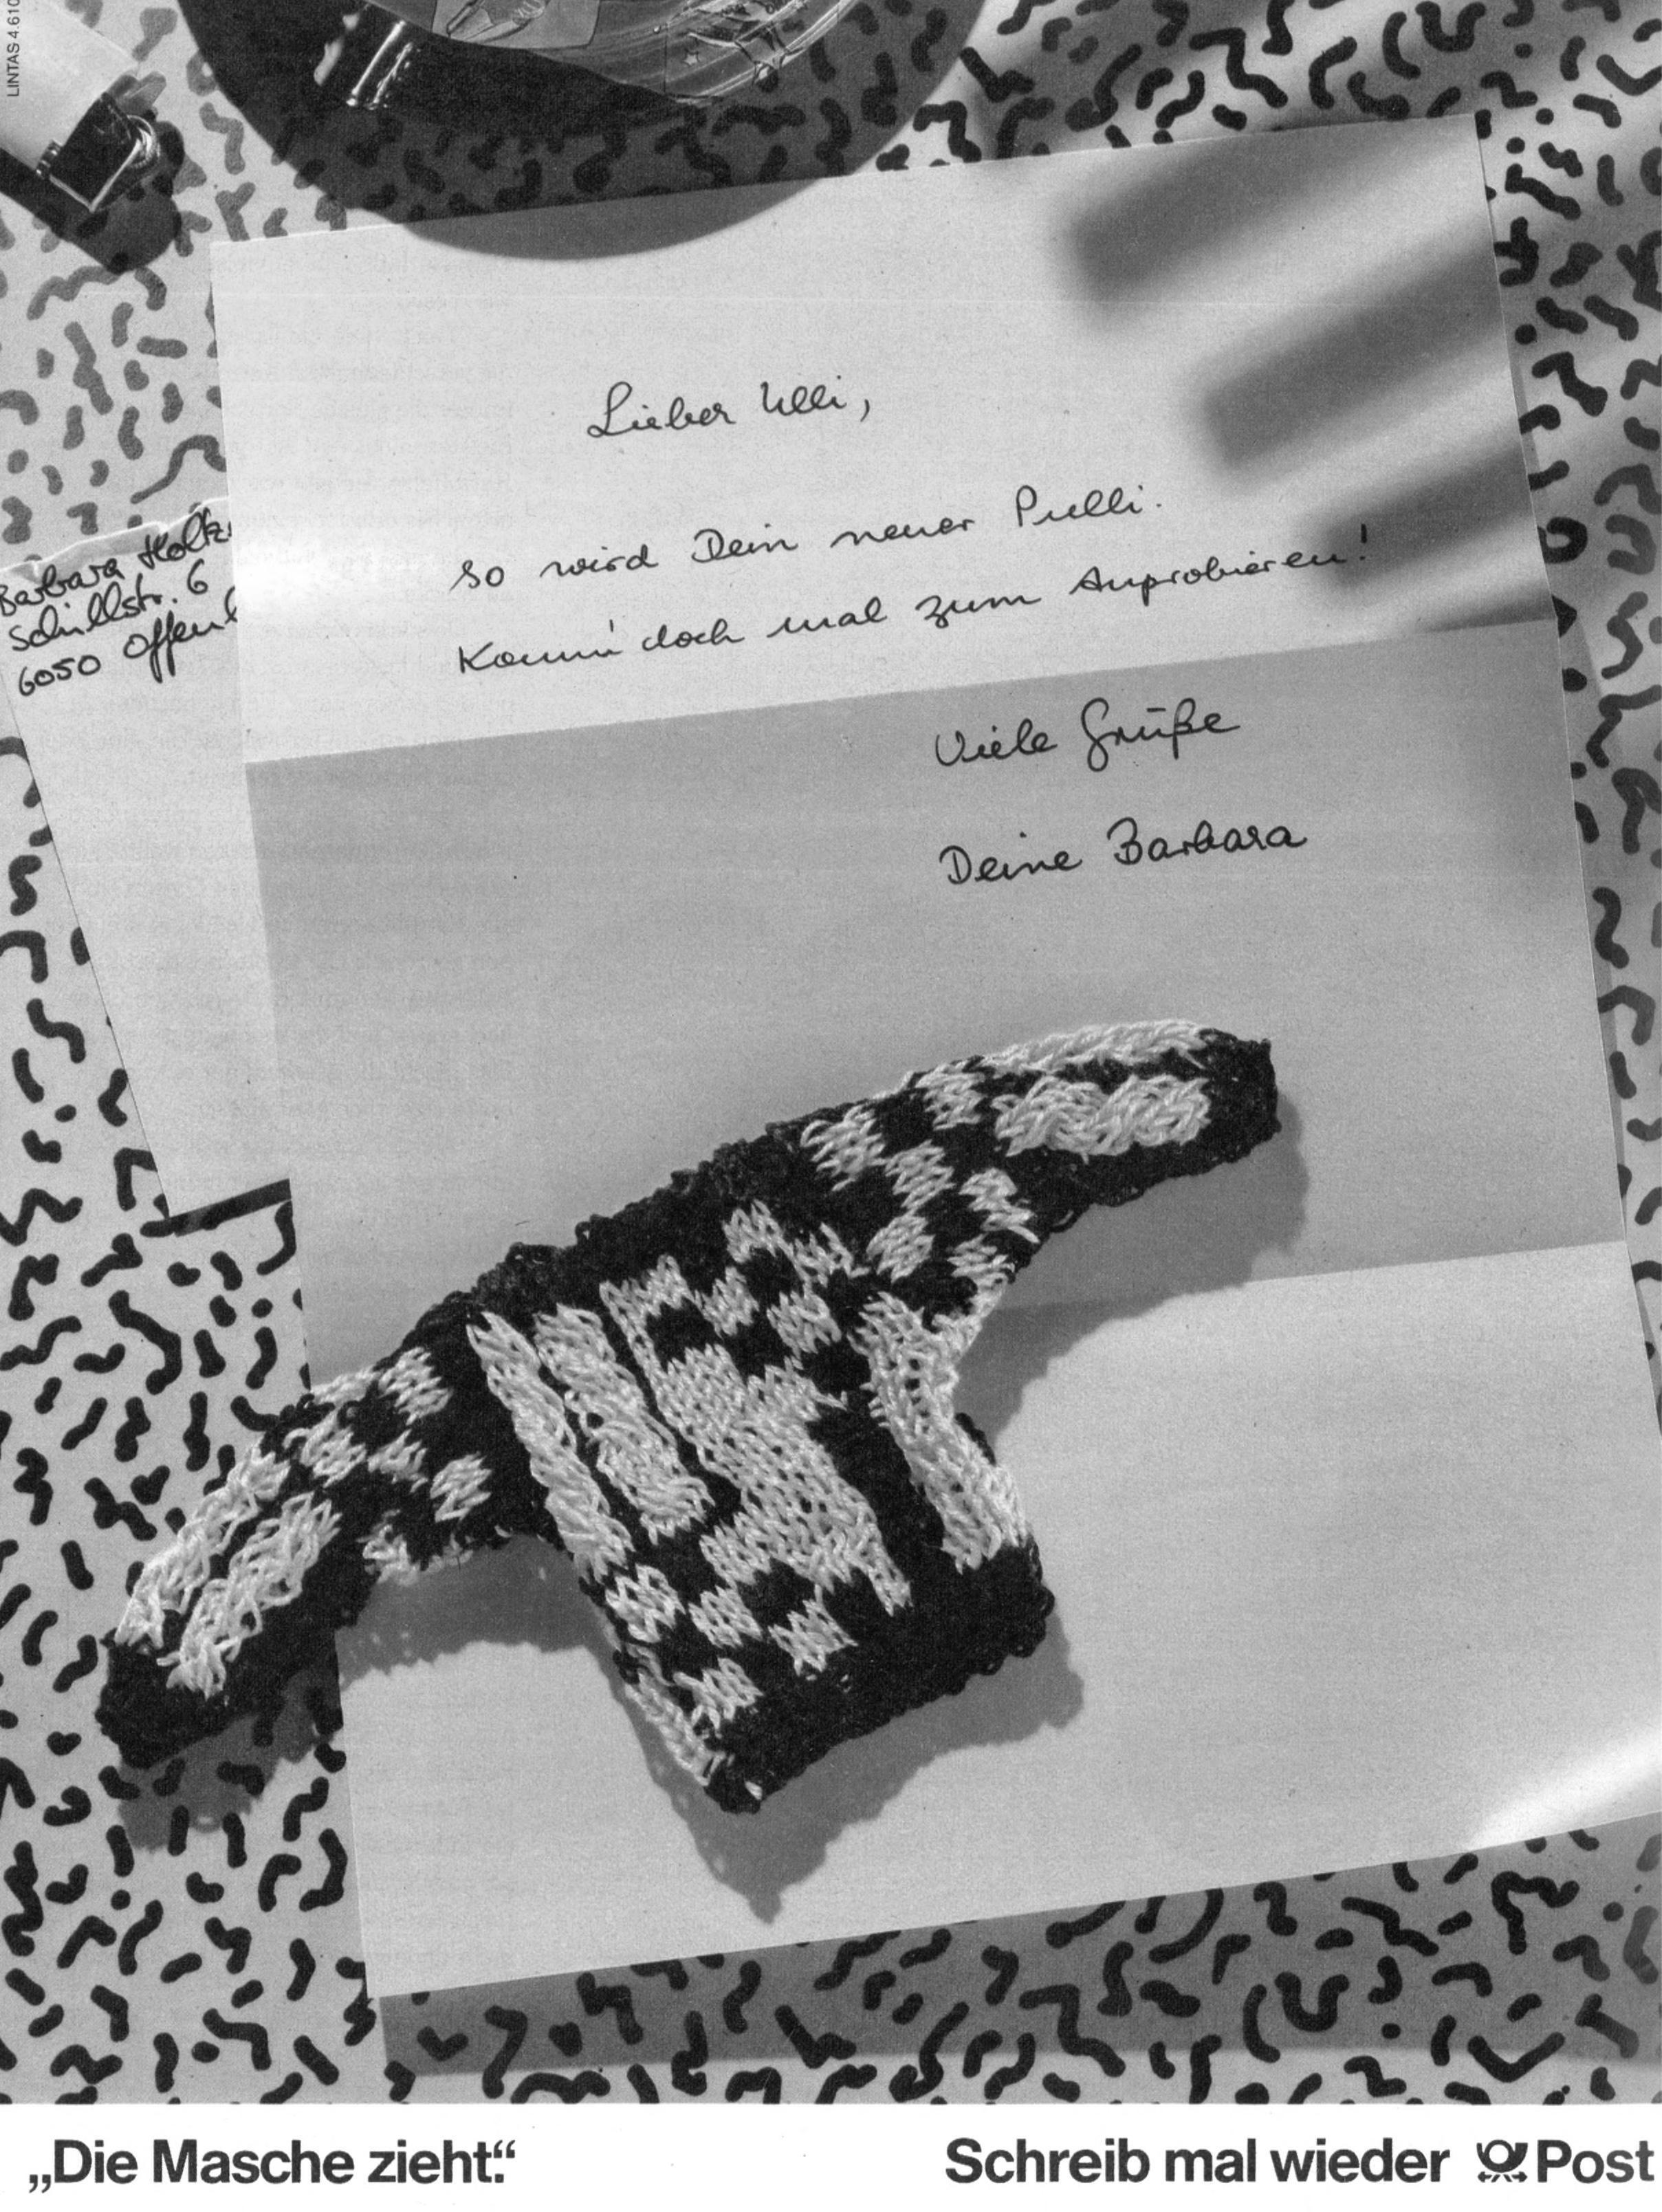 LINTAS 4.610
Lieber Ulli,
so wird Dein neuer Pulli.
Komm' doch mal zum Anprobieren!
Viele Grüße
Deine Barbara
Barbara
Schillstr. 6
6050
„Die Masche zieht.“
Schreib mal wieder Post